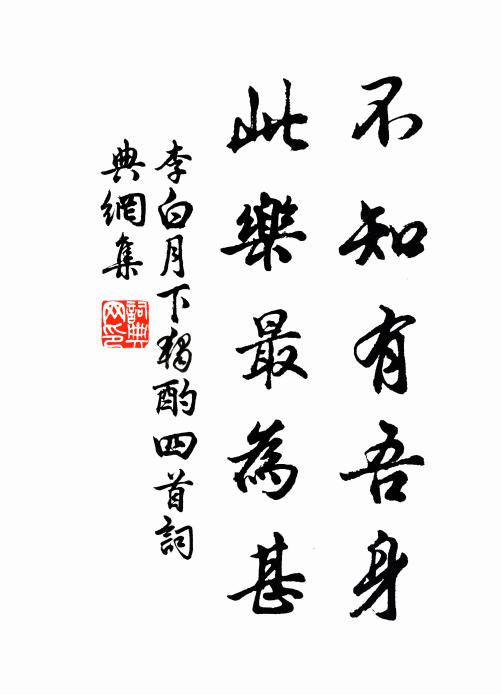 不知有吾身
此樂最為甚
李白月下獨酌四首詞
典網集
詞典
网印